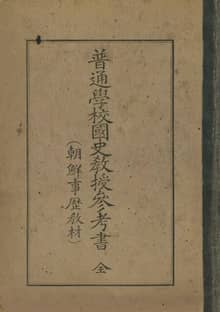 普通學校國史敎授參考書 全
(朝鮮事歷敎材)